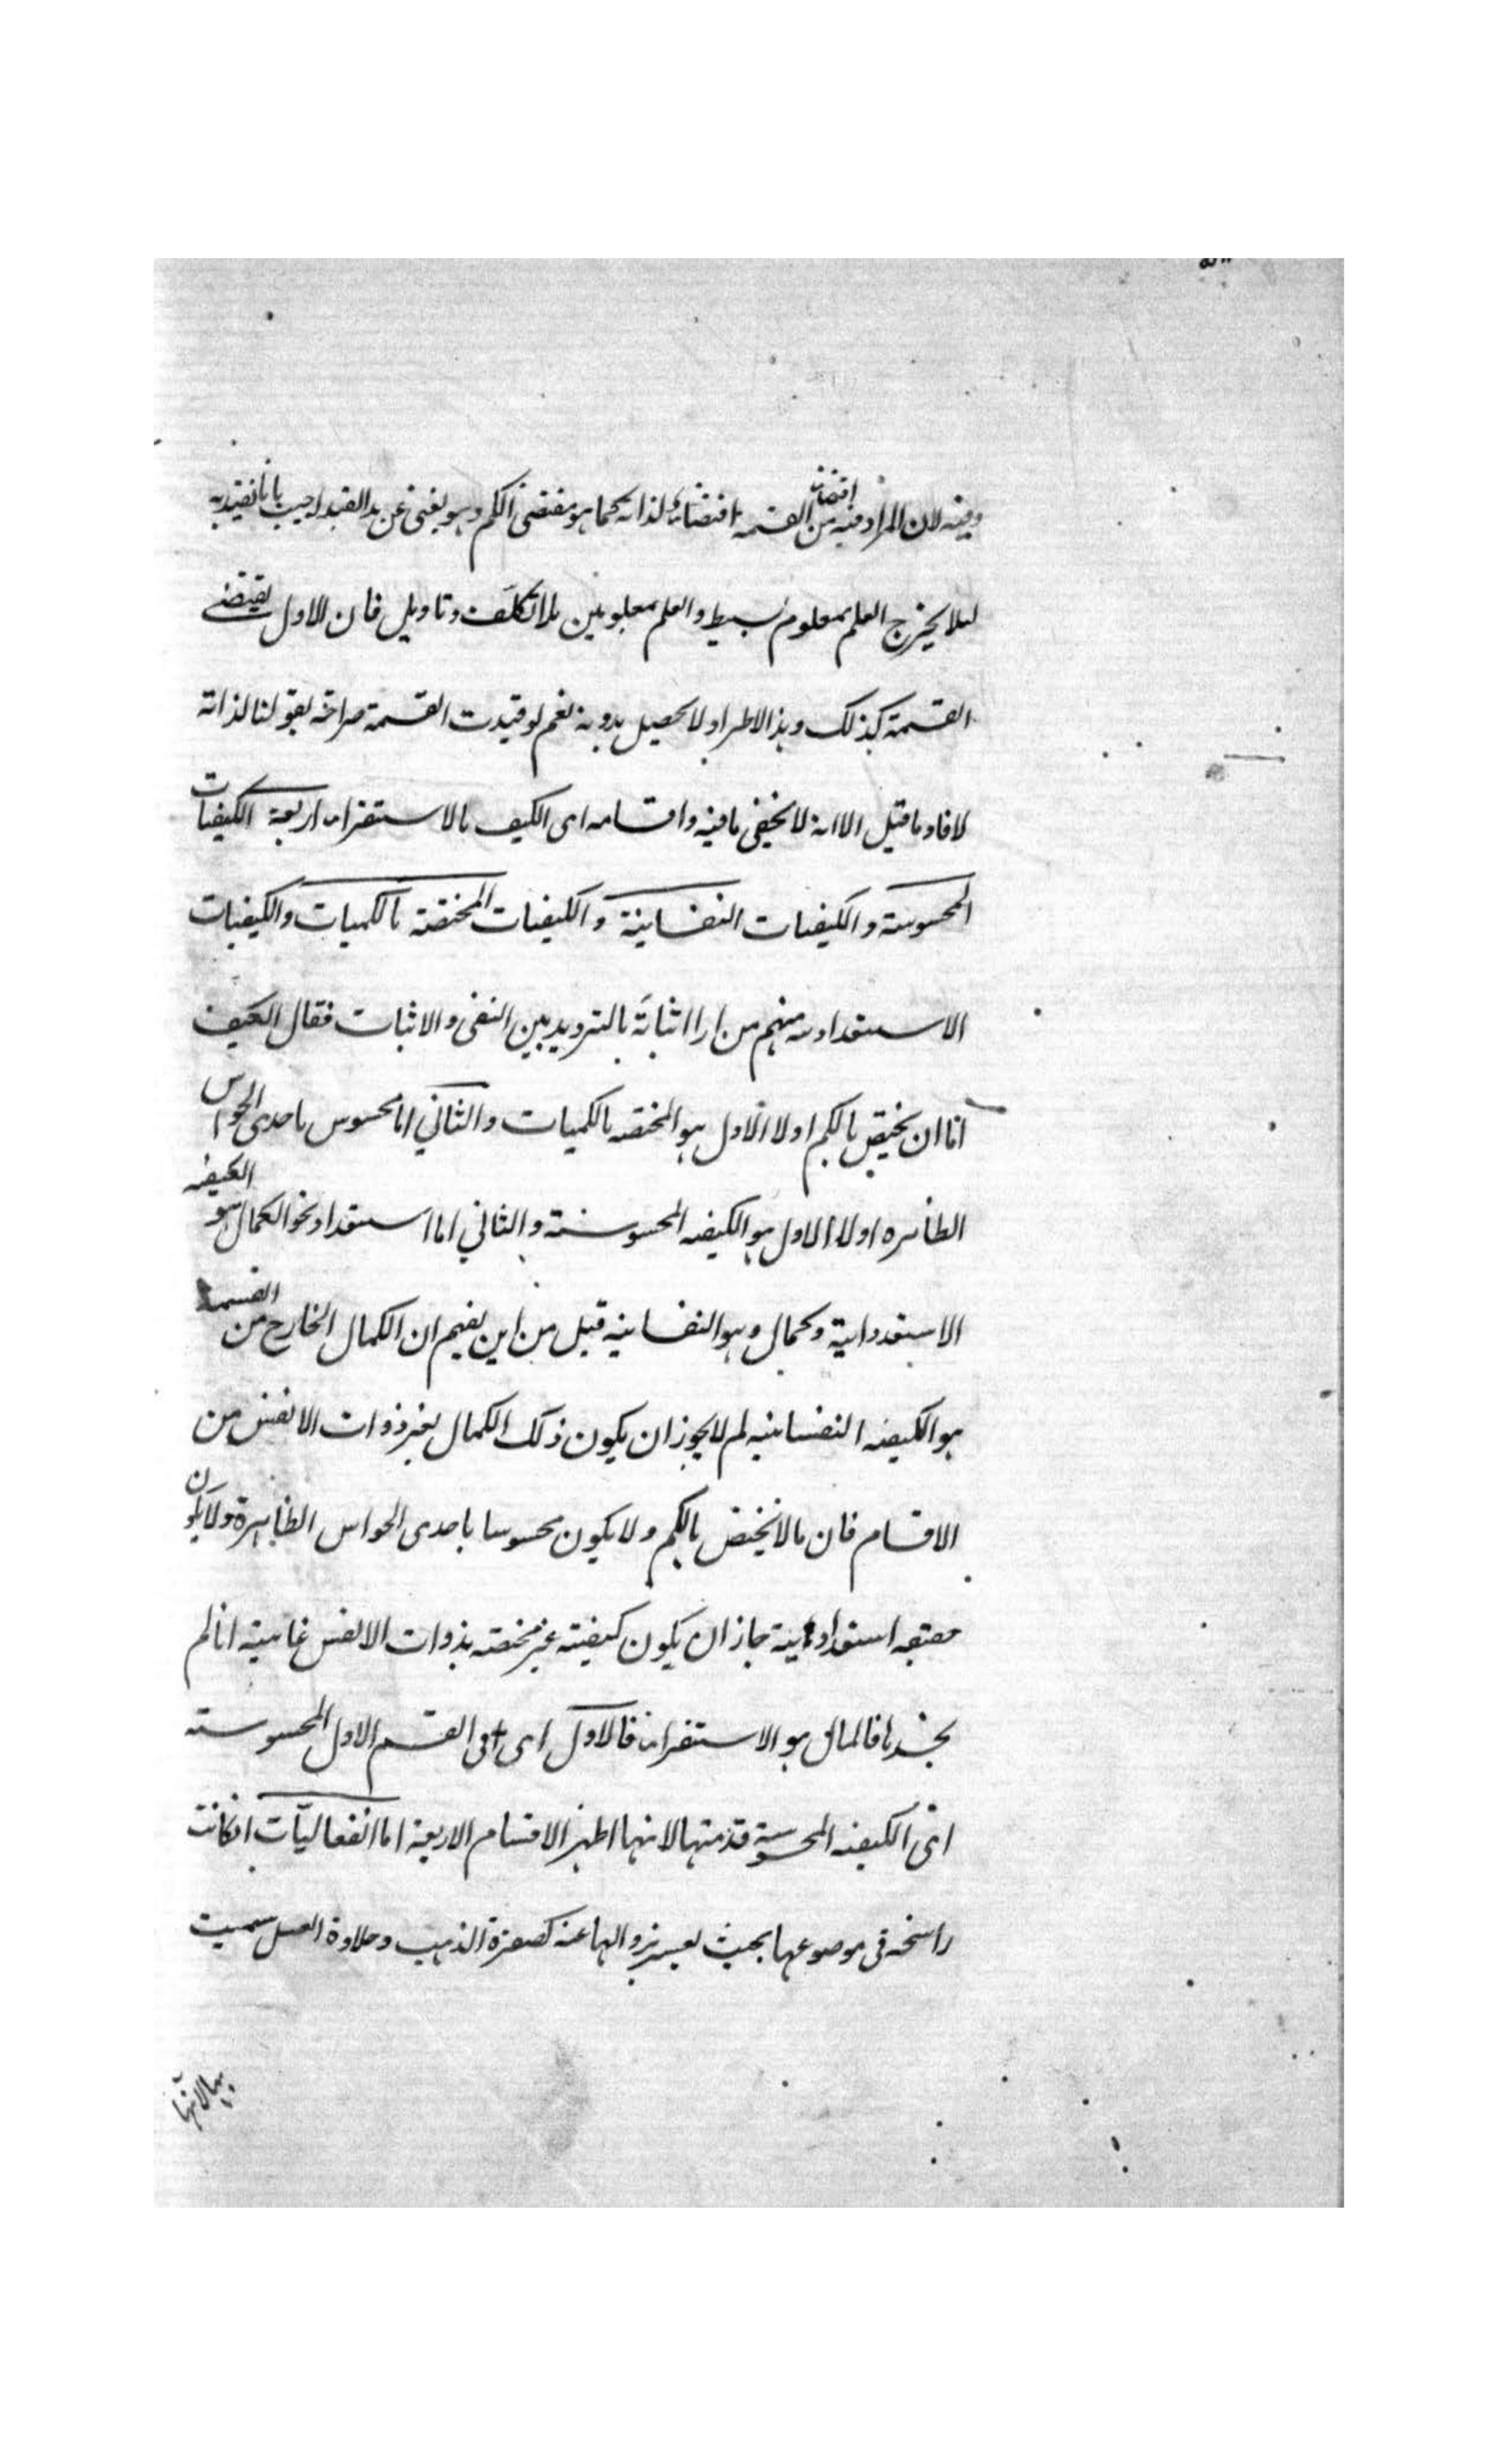 وفيه لان المراد فيه من اقتضاء القسمة اقتضائها لذاته كما هو مقتضى الكم وهو يغنى عن هذا القيد اجيب بانا نقيد به
لئلا يخرج العلم بمعلوم بسيط والعلم بمعلومين بلا تكلف وتاويل فان الاول يقتضى
القسمة كذلك وهذا الاطراد لا يحصل بدونه نعم لو قيدت القسمة صراحة بقولنا لذاته
لافاد ما قيل الا انه لا يخفى ما فيه واقسامه اى الكيف بالاستقراء اربعة الكيفيات
المحسوسة والكيفيات النفسانية والكيفيات المختصة بالكميات والكيفيات
الاستعدادية منهم من اراد اثباته بالترديد بين النفى والاثبات فقال الكيف
اما ان يختص بالكم اولا الاول هو المختصة بالكميات والثانى اما محسوس باحدى الحواس
الظاهره اولا الاول هو الكيفيه المحسوسة والثانى اما استعداد نحو الكمال هو الكيفيه
الاستعدداية وكمال وهو النفسانيه قيل من اين يفهم ان الكمال الخارج من القسمة
هو الكيفيه النفسانيه لم لا يجوز ان يكون ذلك الكمال لغير ذوات الانفس من
الاقسام فان ما لا يختص بالكم ولا يكون محسوسا باحدى الحواس الظاهرة ولا يكون
حقيقه استعدادية جاز ان يكون كيفيته غير مختصه بذوات الانفس غايته انا لم
نجدها فالمال هو الاستقراء فالاول اى فى القسم الاول المحسوسته
اى الكيفيه المحسوسة قدمتها لانها اظهر الاقسام الاربعة اما انفعاليّات انكانت
راسخة فى موضوعها بحيث يعسر زوالها عنه كصفرة الذهب وحلاوة العسل سميت
بها لانها